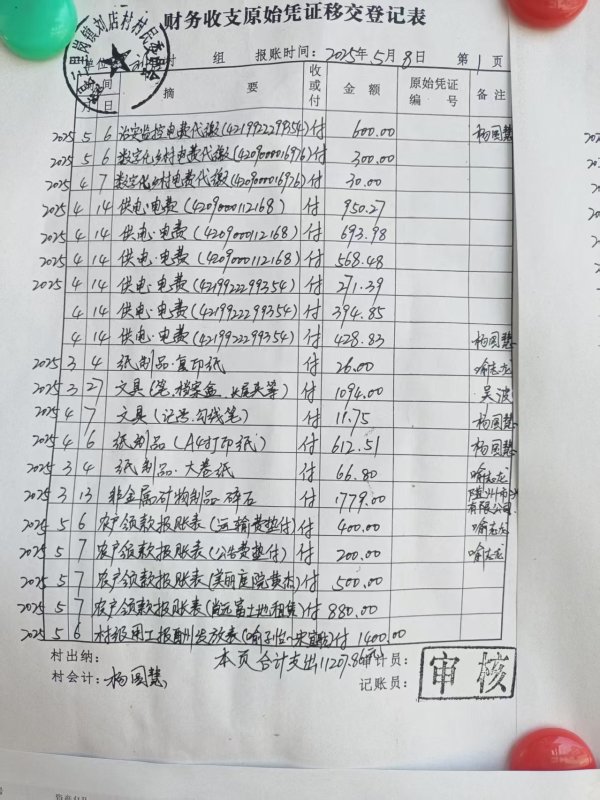 财务收支原始凭证移交登记表
单位 村 组 报账时间：2025年5月8日 第1页
时间 摘要 收或付 金额 原始凭证编号 备注
月 日
2025 5 6 治安监控电费代缴(4219922299354) 付 600.00 杨国慧
2025 5 6 数字化乡村电费代缴(4209000016976) 付 300.00
2025 4 7 数字化乡村电费代缴(4209000016976) 付 30.00
2025 4 14 供电·电费(4209000112168) 付 950.27
2025 4 14 供电·电费(4209000112168) 付 693.98
2025 4 14 供电·电费(4209000112168) 付 568.48
2025 4 14 供电·电费(4219922299354) 付 271.39
4 14 供电·电费(4219922299354) 付 394.85
4 14 供电·电费(4219922299354) 付 428.83 杨国慧
2025 3 4 纸制品·复印纸 付 26.00 喻志龙
2025 3 27 文具(笔、档案盒、长尾夹等) 付 1094.00 吴波
2025 4 7 文具(记号、勾线笔) 付 11.75 杨国慧
2025 4 6 纸制品(A4打印纸) 付 612.51 杨国慧
2025 3 4 纸制品·大卷纸 付 66.80 喻志龙
2025 3 13 非金属矿物制品·碎石 付 1779.00 随州市 有限公司
2025 5 6 农户领款报账表(运输费垫付) 付 400.00 喻志龙
2025 5 7 农户领款报账表(公告费垫付) 付 200.00 喻志龙
2025 5 7 农户领款报账表(美丽庭院 ) 付 500.00
2025 5 7 农户领款报账表( 土地租集) 付 880.00
2025 5 6 村级用工报酬发放表( ) 付 1400.00
村出纳： 本页合计支出11207.86元 审计员：
村会计：杨国慧 记账员：
审核